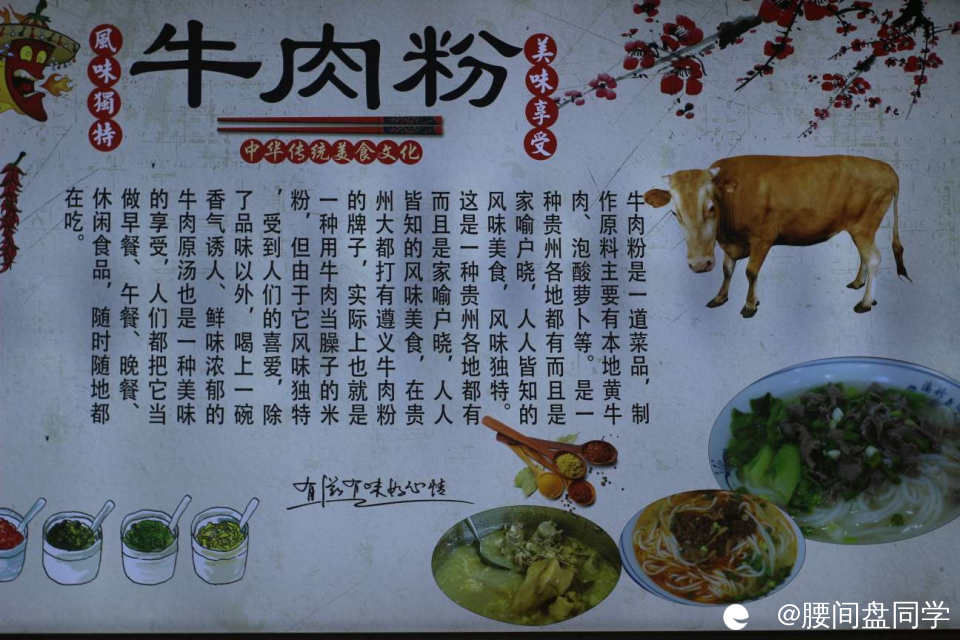 風味獨特
牛肉粉
美味享受
中华传统美食文化
牛肉粉是一道菜品，制
作原料主要有本地黄牛
肉、泡酸萝卜等。是一
种贵州各地都有而且是
家喻户晓，人人皆知的
风味美食，风味独特。
这是一种贵州各地都有
而且是家喻户晓，人人
皆知的风味美食，在贵
州大都打有遵义牛肉粉
的牌子，实际上也就是
一种用牛肉当臊子的米
粉，但由于它风味独特
，受到人们的喜爱，除
了品味以外，喝上一碗
香气诱人、鲜味浓郁的
牛肉原汤也是一种美味
的享受，人们都把它当
做早餐、午餐、晚餐、
休闲食品，随时随地都
在吃。
有滋有味好心情
@腰间盘同学